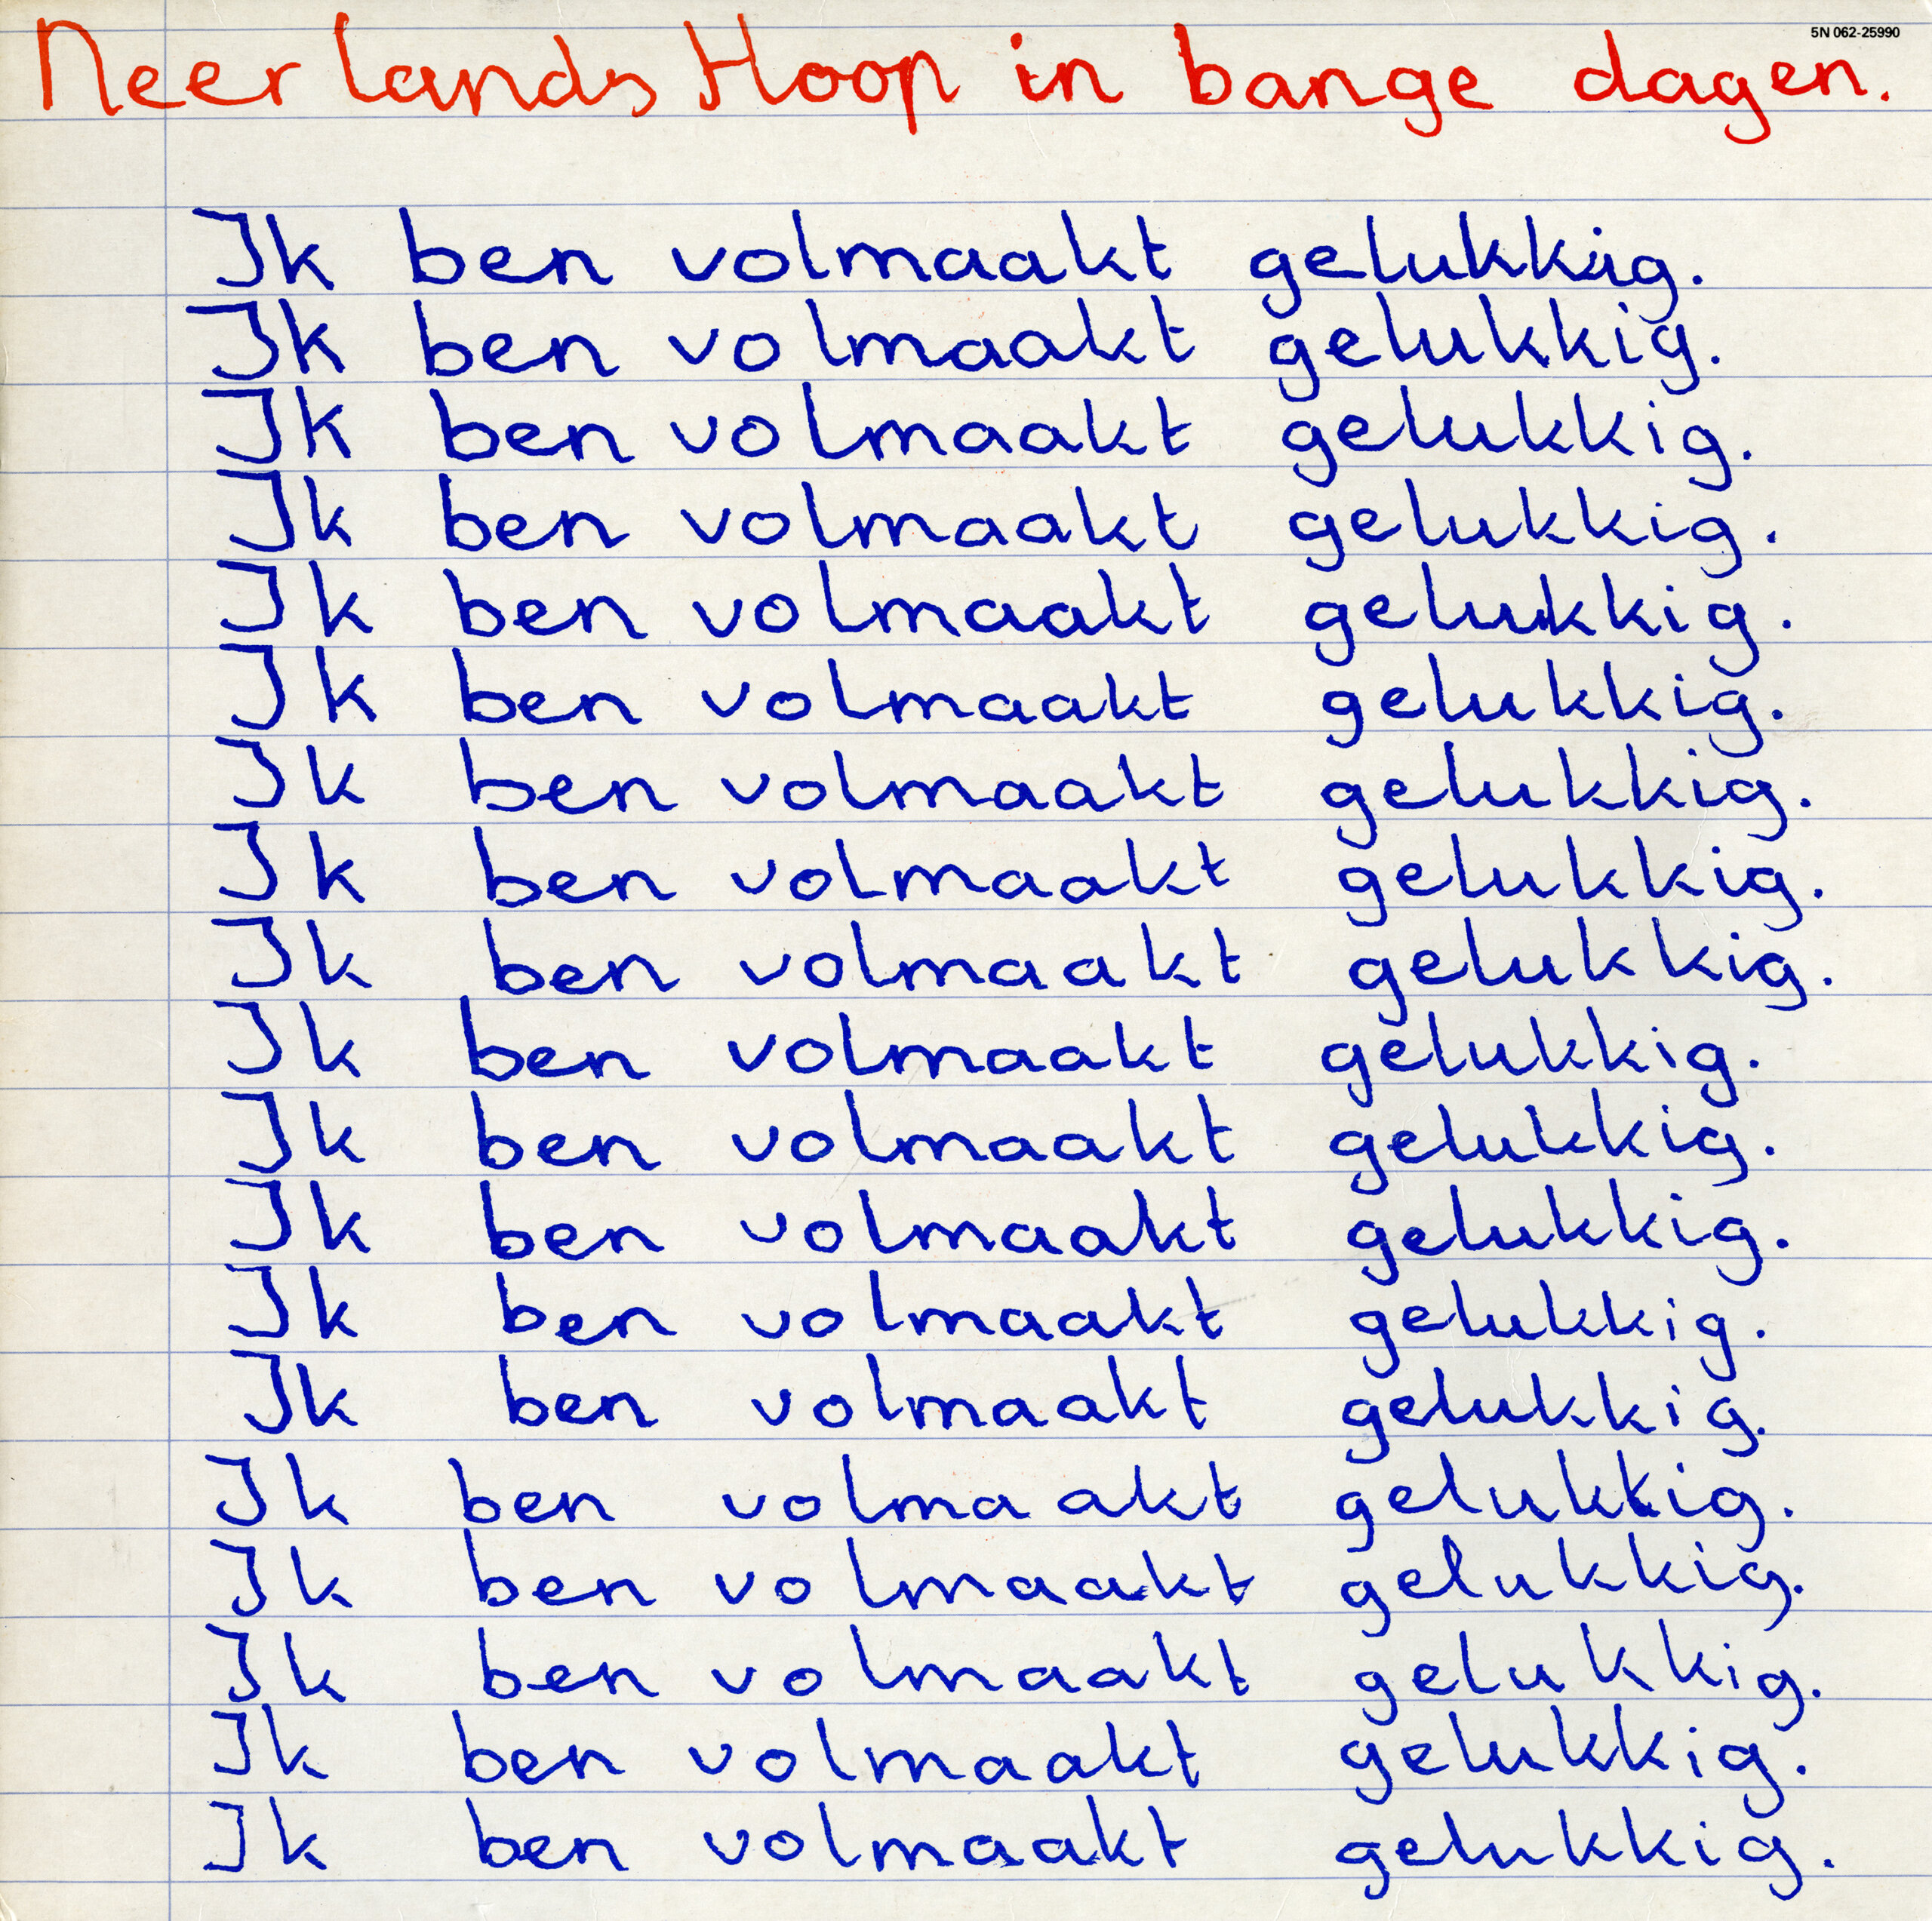 5N 062-25990
Neerlands Hoop in bange dagen.
Ik ben volmaakt gelukkig.
Ik ben volmaakt gelukkig.
Ik ben volmaakt gelukkig.
Ik ben volmaakt gelukkig.
Ik ben volmaakt gelukkig.
Ik ben volmaakt gelukkig.
Ik ben volmaakt gelukkig.
Ik ben volmaakt gelukkig.
Ik ben volmaakt gelukkig.
Ik ben volmaakt gelukkig.
Ik ben volmaakt gelukkig.
Ik ben volmaakt gelukkig.
Ik ben volmaakt gelukkig.
Ik ben volmaakt gelukkig.
Ik ben volmaakt gelukkig.
Ik ben volmaakt gelukkig.
Ik ben volmaakt gelukkig.
Ik ben volmaakt gelukkig.
Ik ben volmaakt gelukkig.